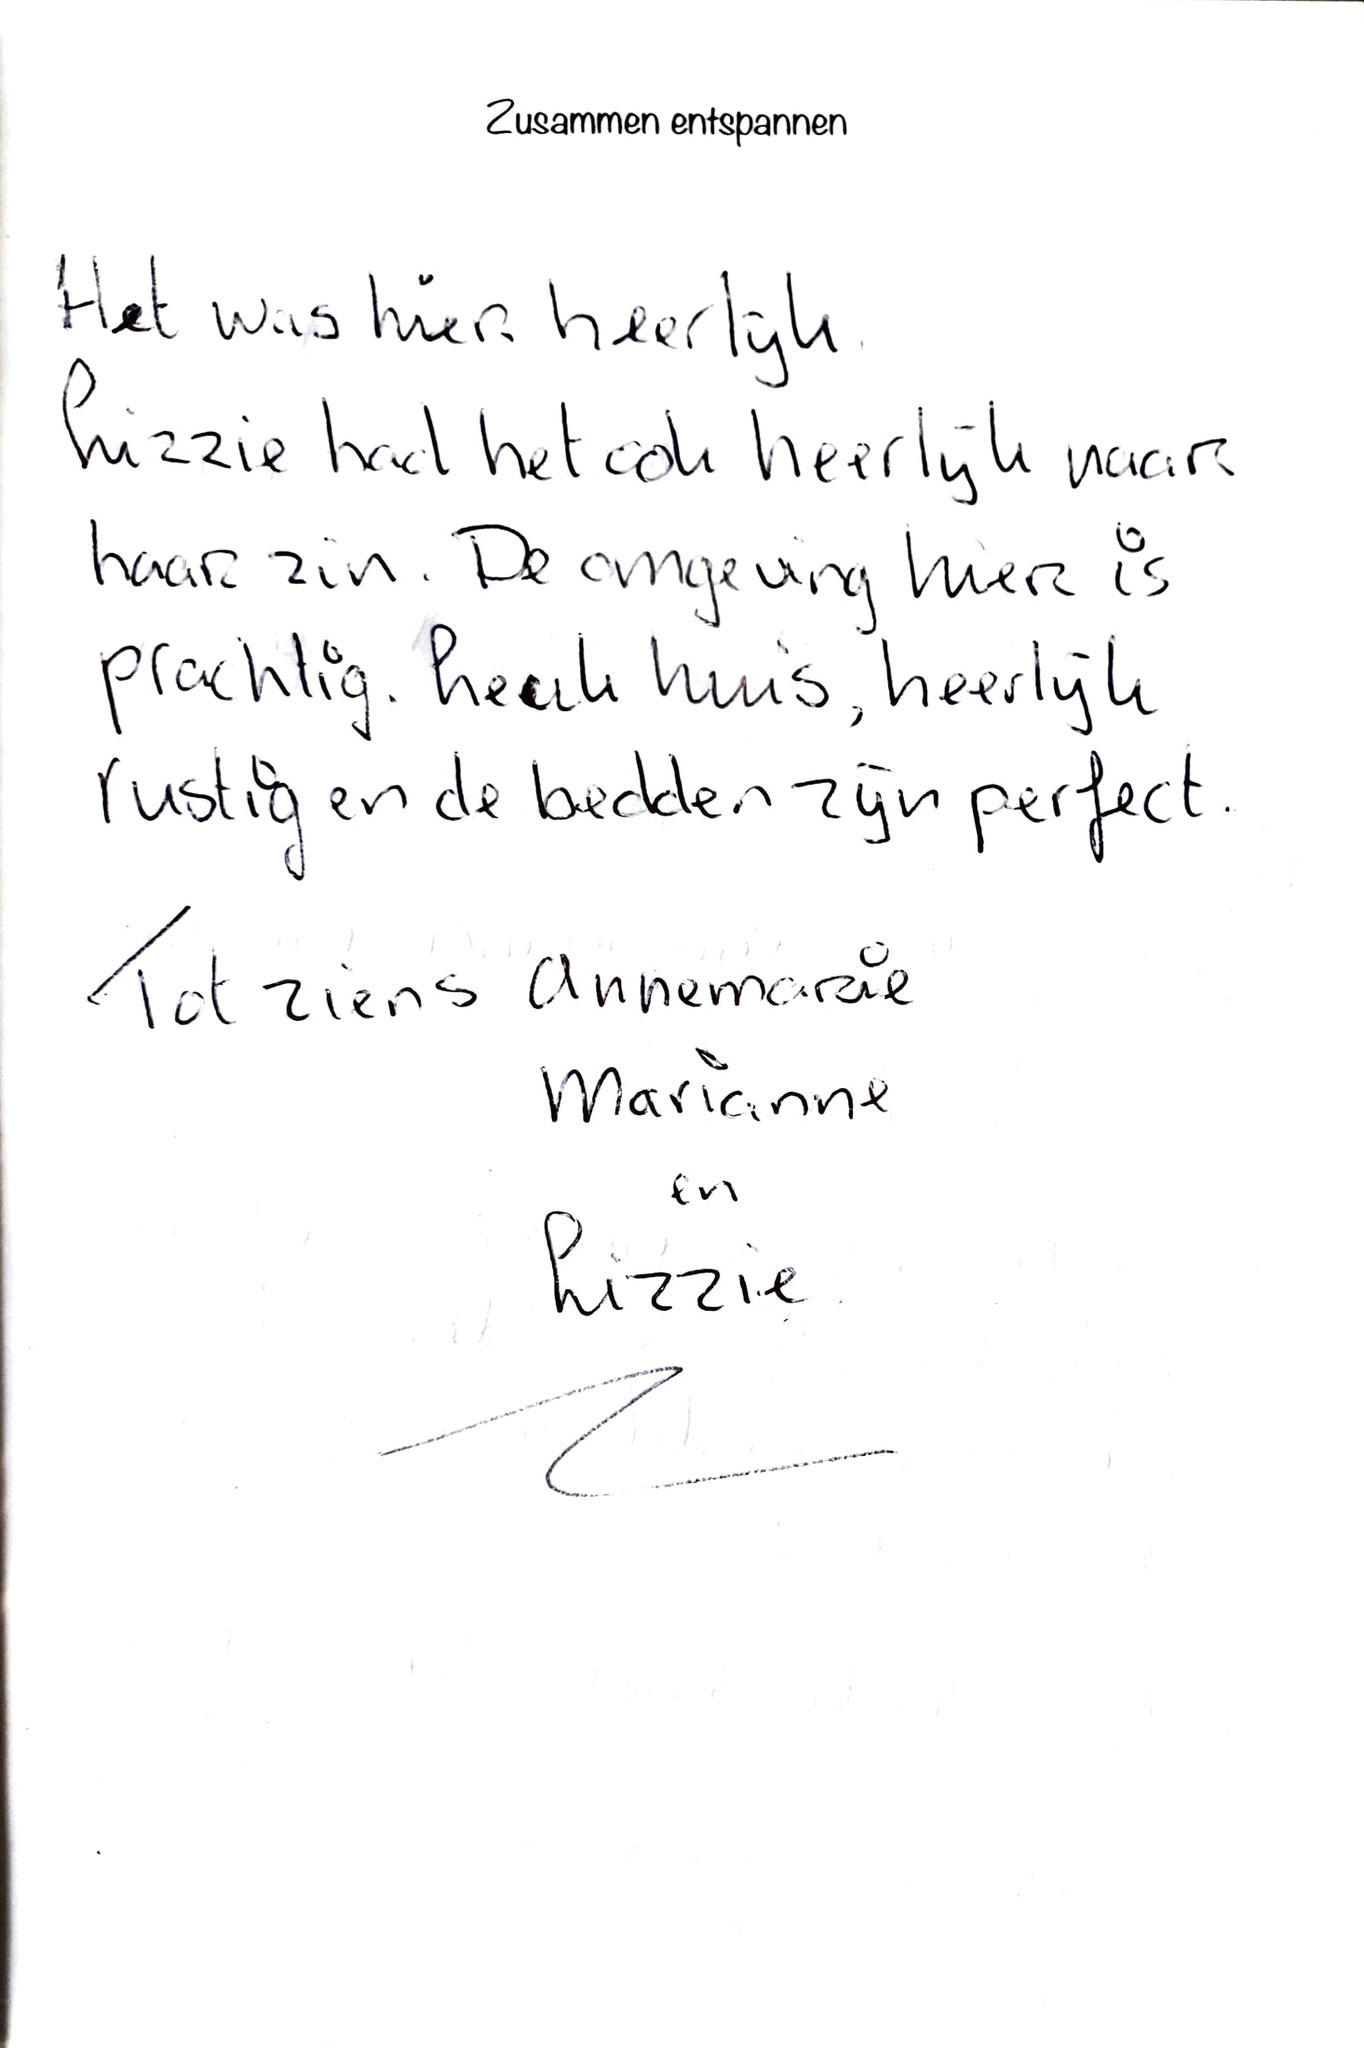 Zusammen entspannen
Het was hier heerlijk.
Lizzie had het ook heerlijk naar
haar zin. De omgeving hier is
prachtig. Leuk huis, heerlijk
rustig en de bedden zijn perfect.
Tot ziens Annemarie
Marianne
en
Lizzie.